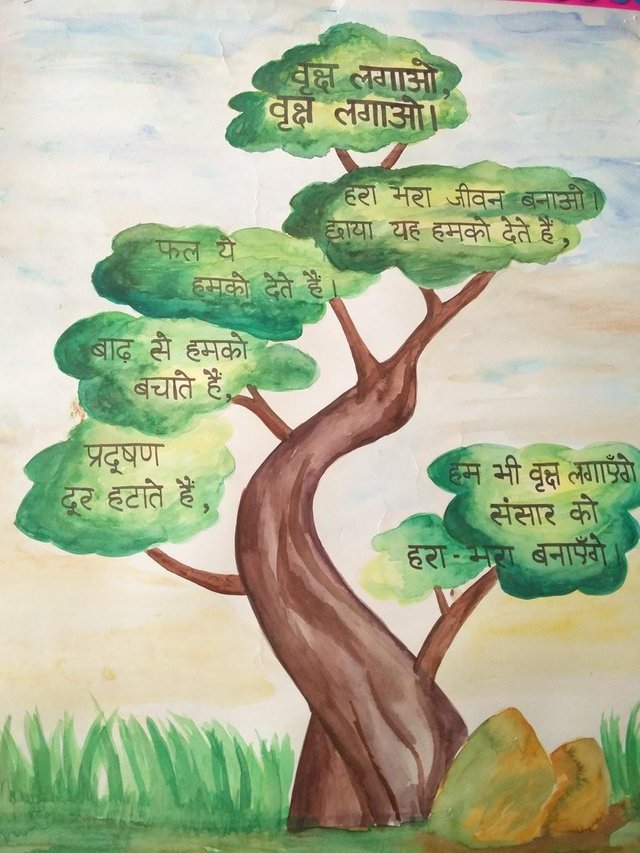 वृक्ष लगाओ,
वृक्ष लगाओ।
हरा भरा जीवन बनाओ।
छाया यह हमको देते हैं,
फल ये
हमको देते हैं।
बाढ़ से हमको
बचाते हैं,
प्रदूषण
दूर हटाते हैं,
हम भी वृक्ष लगाएँगे
संसार को
हरा-भरा बनाएँगे।